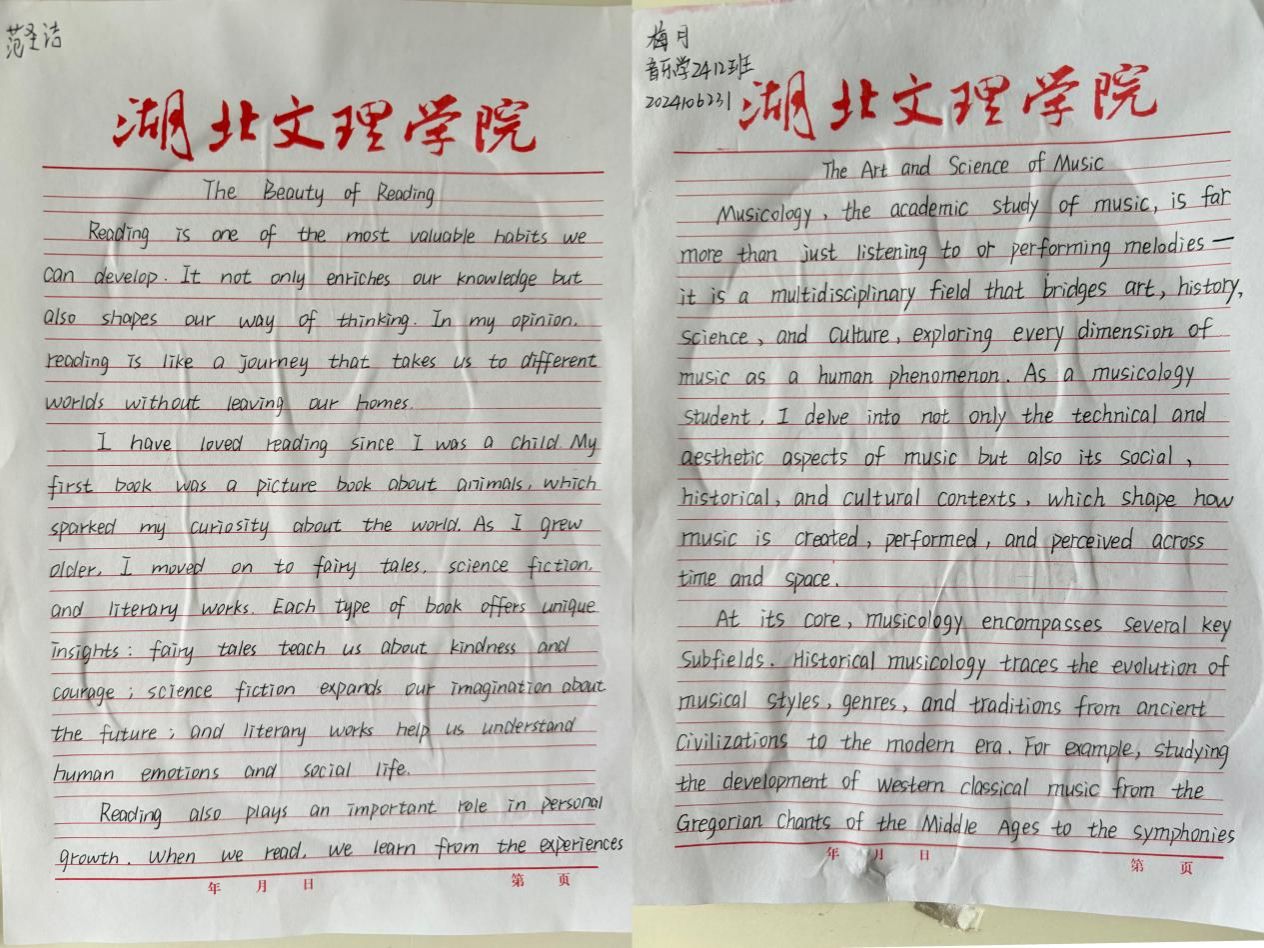 范圣洁
湖北文理学院
The Beauty of Reading
Reading is one of the most valuable habits we
can develop. It not only enriches our knowledge but
also shapes our way of thinking. In my opinion,
reading is like a journey that takes us to different
worlds without leaving our homes.
I have loved reading since I was a child. My
first book was a picture book about animals, which
sparked my curiosity about the world. As I grew
older, I moved on to fairy tales, science fiction,
and literary works. Each type of book offers unique
insights: fairy tales teach us about kindness and
courage; science fiction expands our imagination about
the future; and literary works help us understand
human emotions and social life.
Reading also plays an important role in personal
growth. When we read, we learn from the experiences
年 月 日 第 页
梅月
音乐学2412班
2024106231
湖北文理学院
The Art and Science of Music
Musicology, the academic study of music, is far
more than just listening to or performing melodies—
it is a multidisciplinary field that bridges art, history,
science, and culture, exploring every dimension of
music as a human phenomenon. As a musicology
student, I delve into not only the technical and
aesthetic aspects of music but also its social,
historical, and cultural contexts, which shape how
music is created, performed, and perceived across
time and space.
At its core, musicology encompasses several key
subfields. Historical musicology traces the evolution of
musical styles, genres, and traditions from ancient
civilizations to the modern era. For example, studying
the development of western classical music from the
Gregorian Chants of the Middle Ages to the symphonies
年 月 日 第 页